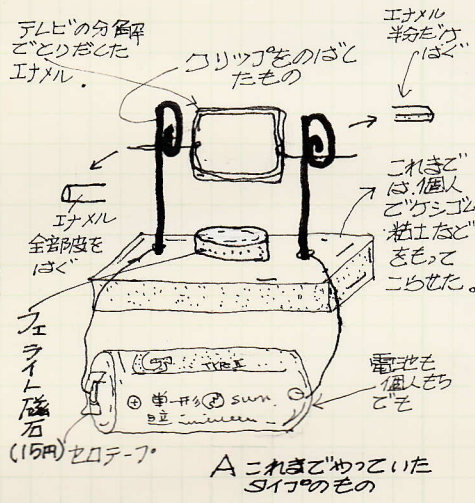 テレビの分解
でとりだした
エナメル.
クリップをのばし
たもの
エナメル
半分だけ
はぐ
エナメル
全部皮を
はぐ
これまで
は、個人
でケシゴム
粘土など
をもって
こらせた。
フェライト磁石
(15円)
セロテープ
TYPE
⊕ 単一形 sun.
日立
⊖
電池も
個人もち
でも
A これまでやっていた
タイプのもの